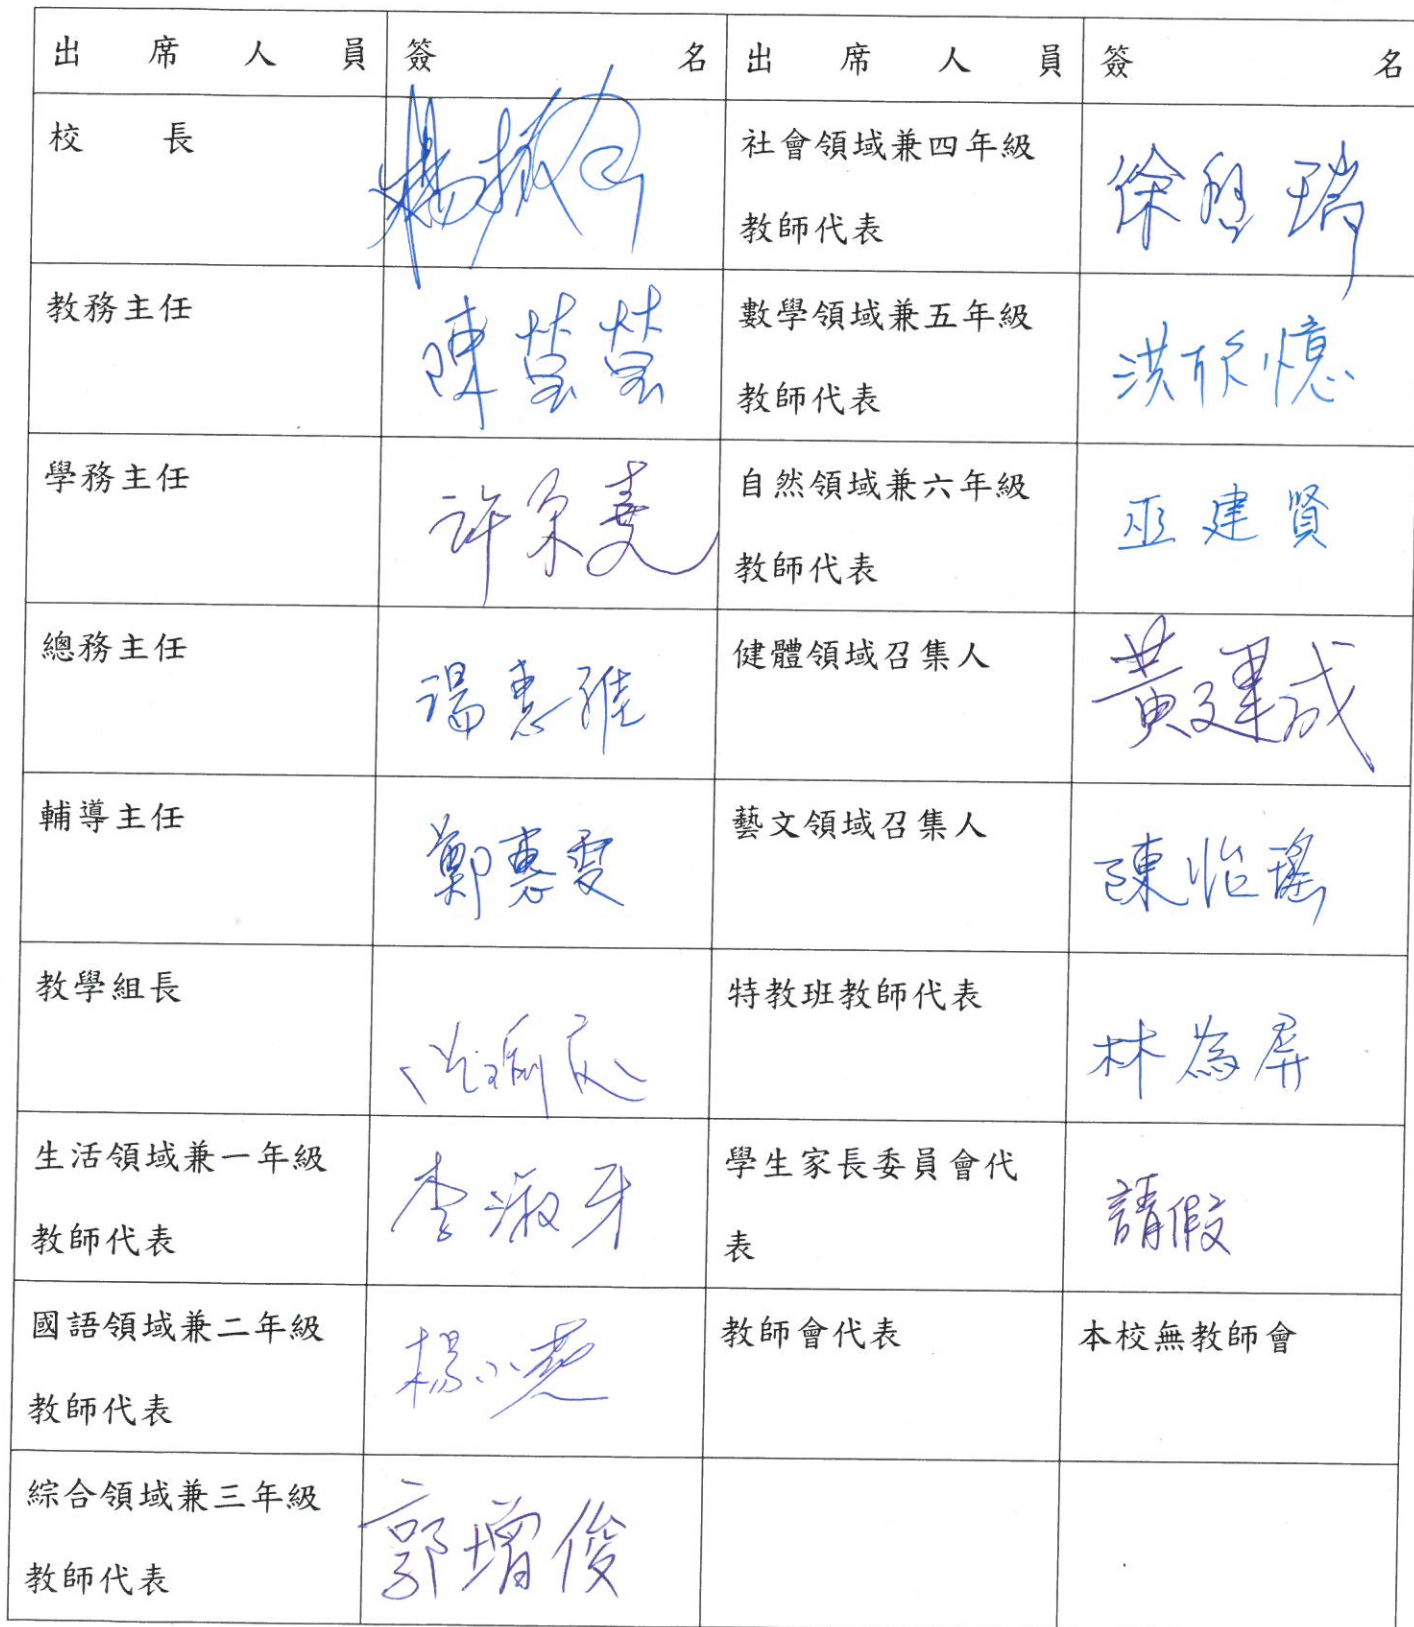 出席人員 簽名 出席人員 簽名
校長 社會領域兼四年級
教師代表 徐 瑞
教務主任 陳瑩瑩 數學領域兼五年級
教師代表 洪欣憶
學務主任 許 自然領域兼六年級
教師代表 巫建賢
總務主任 湯惠雅 健體領域召集人 黃建成
輔導主任 鄭惠雯 藝文領域召集人 陳怡瑤
教學組長 特教班教師代表 林為屏
生活領域兼一年級
教師代表 李淑牙 學生家長委員會代
表 請假
國語領域兼二年級
教師代表 楊小 教師會代表 本校無教師會
綜合領域兼三年級
教師代表 郭增俊